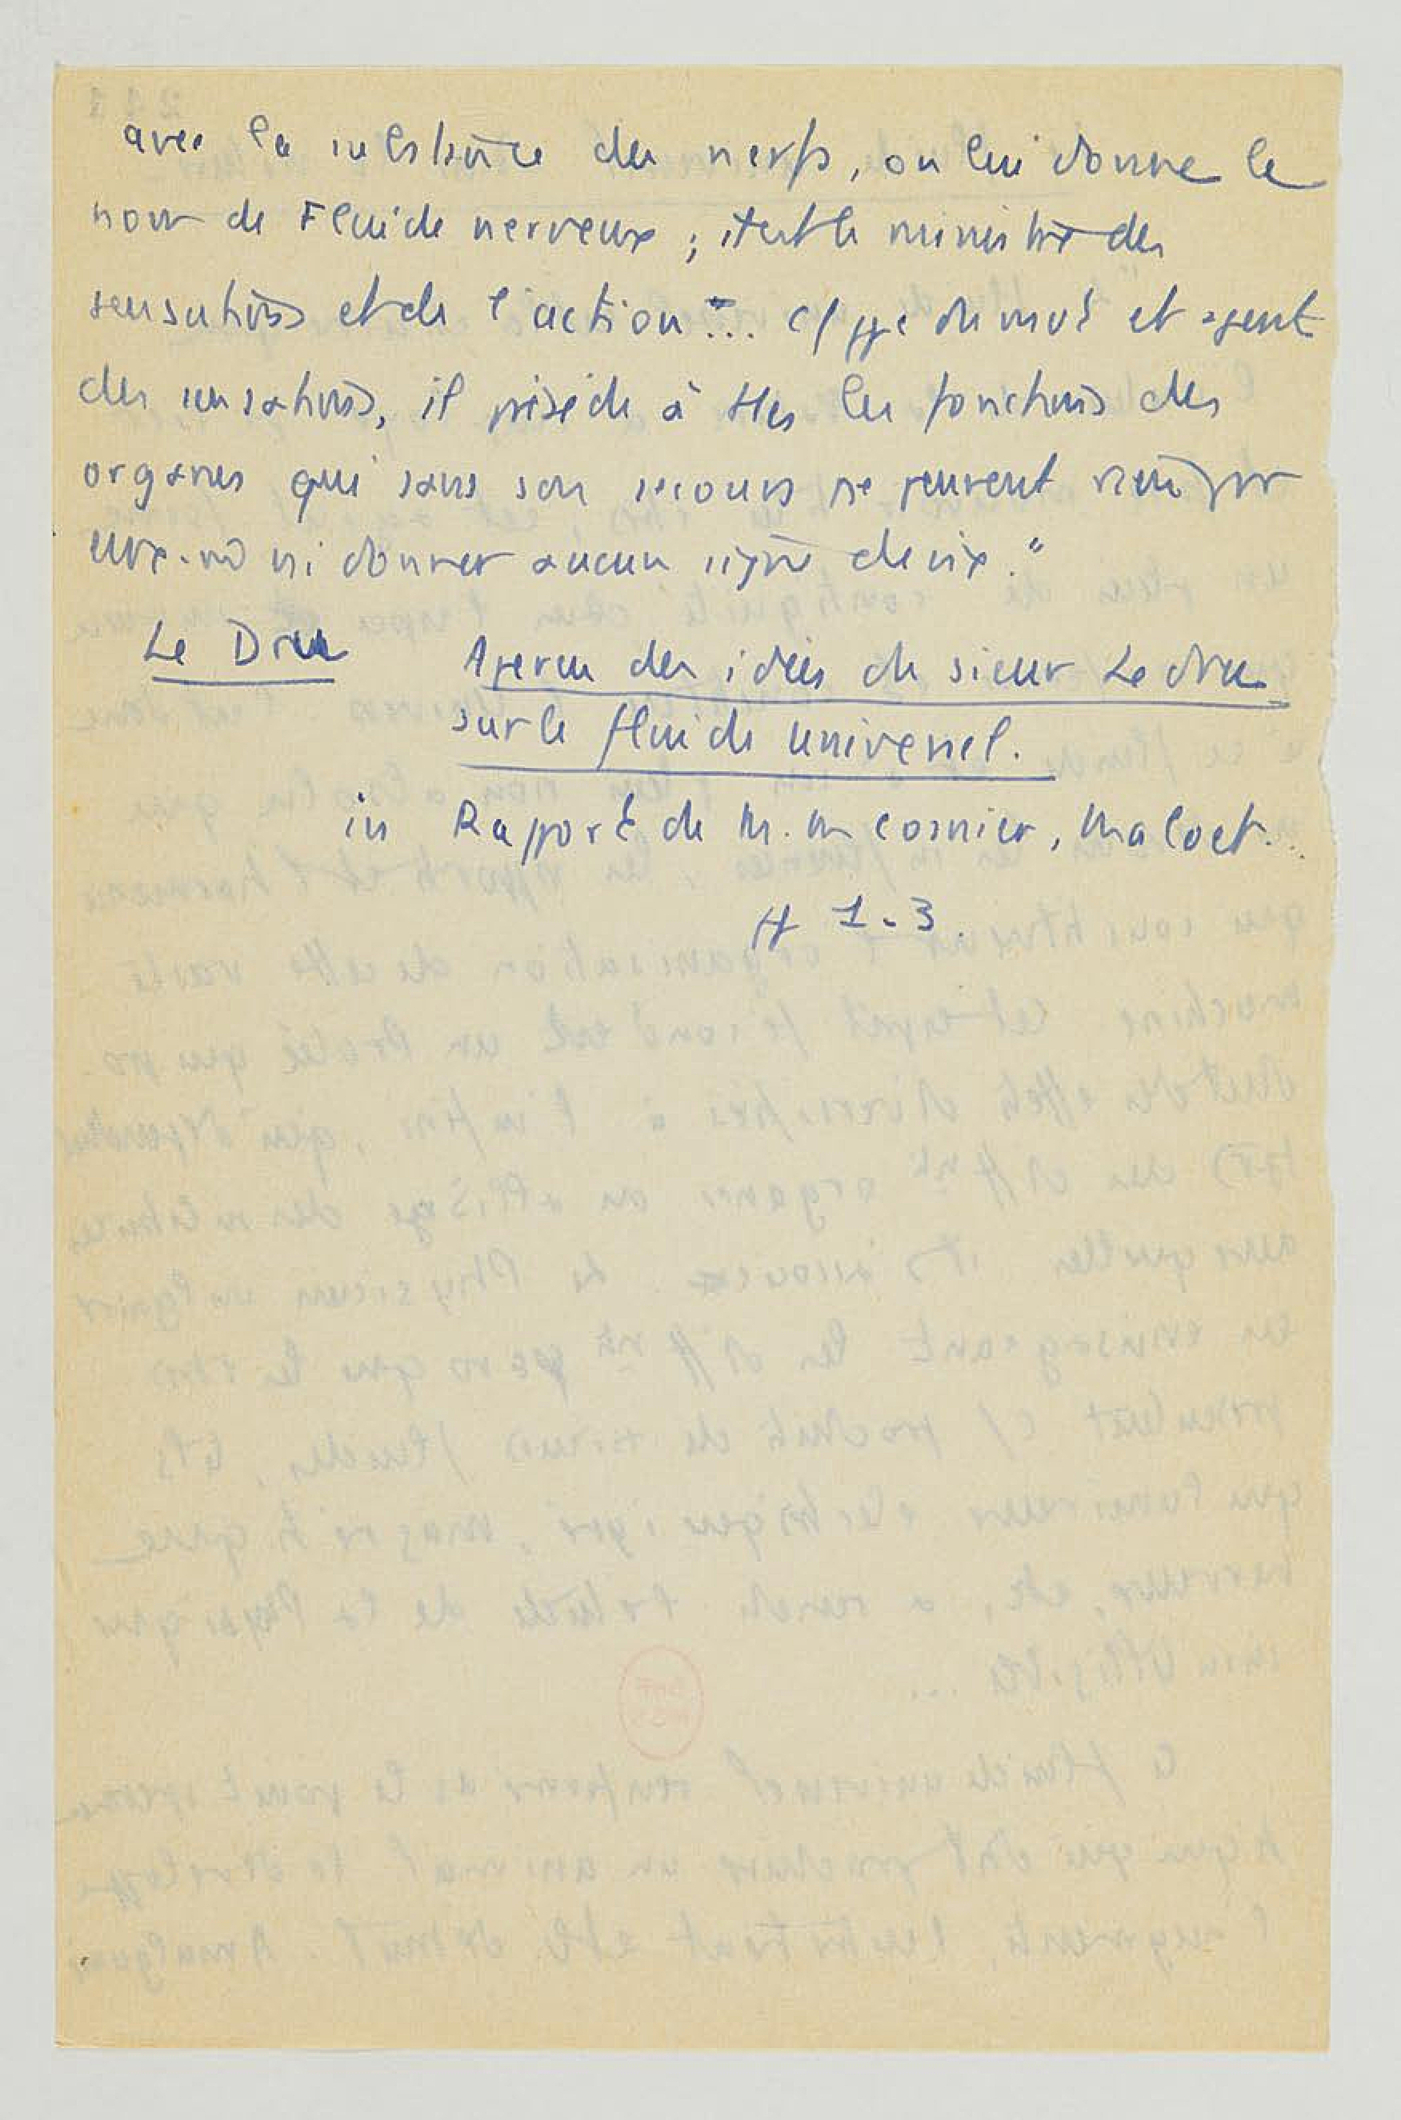 avec la substance des nerfs, on lui donne le
nom de Fluide nerveux ; il est le ministre des
sensations et de l'action"... c/ ppe du mvt et agent
des sensations, il préside à ttes les fonctions des
organes qui sans son secours ne peuvent rien par
eux-m ni donner aucun signe de vie."
Le Dru
Aperçu des idées du sieur Le dru
sur le fluide universel.
in Rapport de M. m cosnier, Maloet...
pp 1-3.